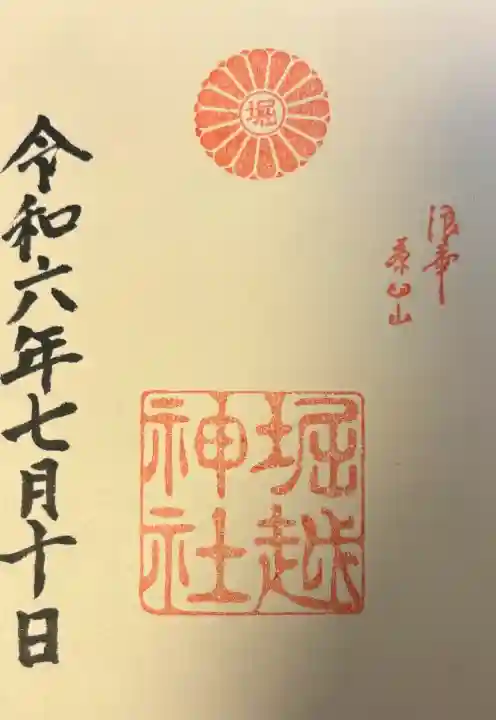 浪華
茶臼山
堀
堀越
神社
令和六年七月十日